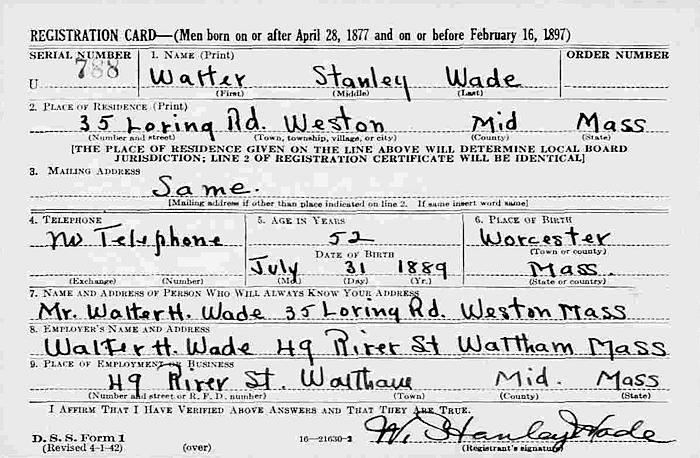 REGISTRATION CARD—(Men born on or after April 28, 1877 and on or before February 16, 1897)
SERIAL NUMBER 1. NAME (Print) ORDER NUMBER
U 788 Walter Stanley Wade
(First) (Middle) (Last)
2. PLACE OF RESIDENCE (Print)
35 Loring Rd. Weston Mid Mass
(Number and street) (Town, township, village, or city) (County) (State)
[THE PLACE OF RESIDENCE GIVEN ON THE LINE ABOVE WILL DETERMINE LOCAL BOARD
JURISDICTION; LINE 2 OF REGISTRATION CERTIFICATE WILL BE IDENTICAL]
3. MAILING ADDRESS
Same.
[Mailing address if other than place indicated on line 2. If same insert word same]
4. TELEPHONE 5. AGE IN YEARS 6. PLACE OF BIRTH
No Telephone 52 Worcester
DATE OF BIRTH (Town or county)
July 31 1889 Mass.
(Exchange) (Number) (Mo.) (Day) (Yr.) (State or country)
7. NAME AND ADDRESS OF PERSON WHO WILL ALWAYS KNOW YOUR ADDRESS
Mr. Walter H. Wade 35 Loring Rd. Weston Mass
8. EMPLOYER'S NAME AND ADDRESS
Walter H. Wade 49 River St Waltham Mass
9. PLACE OF EMPLOYMENT OR BUSINESS
49 River St. Waltham Mid. Mass
(Number and street or R. F. D. number) (Town) (County) (State)
I AFFIRM THAT I HAVE VERIFIED ABOVE ANSWERS AND THAT THEY ARE TRUE.
D. S. S. Form 1 W. Stanley Wade
(Revised 4-1-42) (over) 16—21630-2 (Registrant's signature)